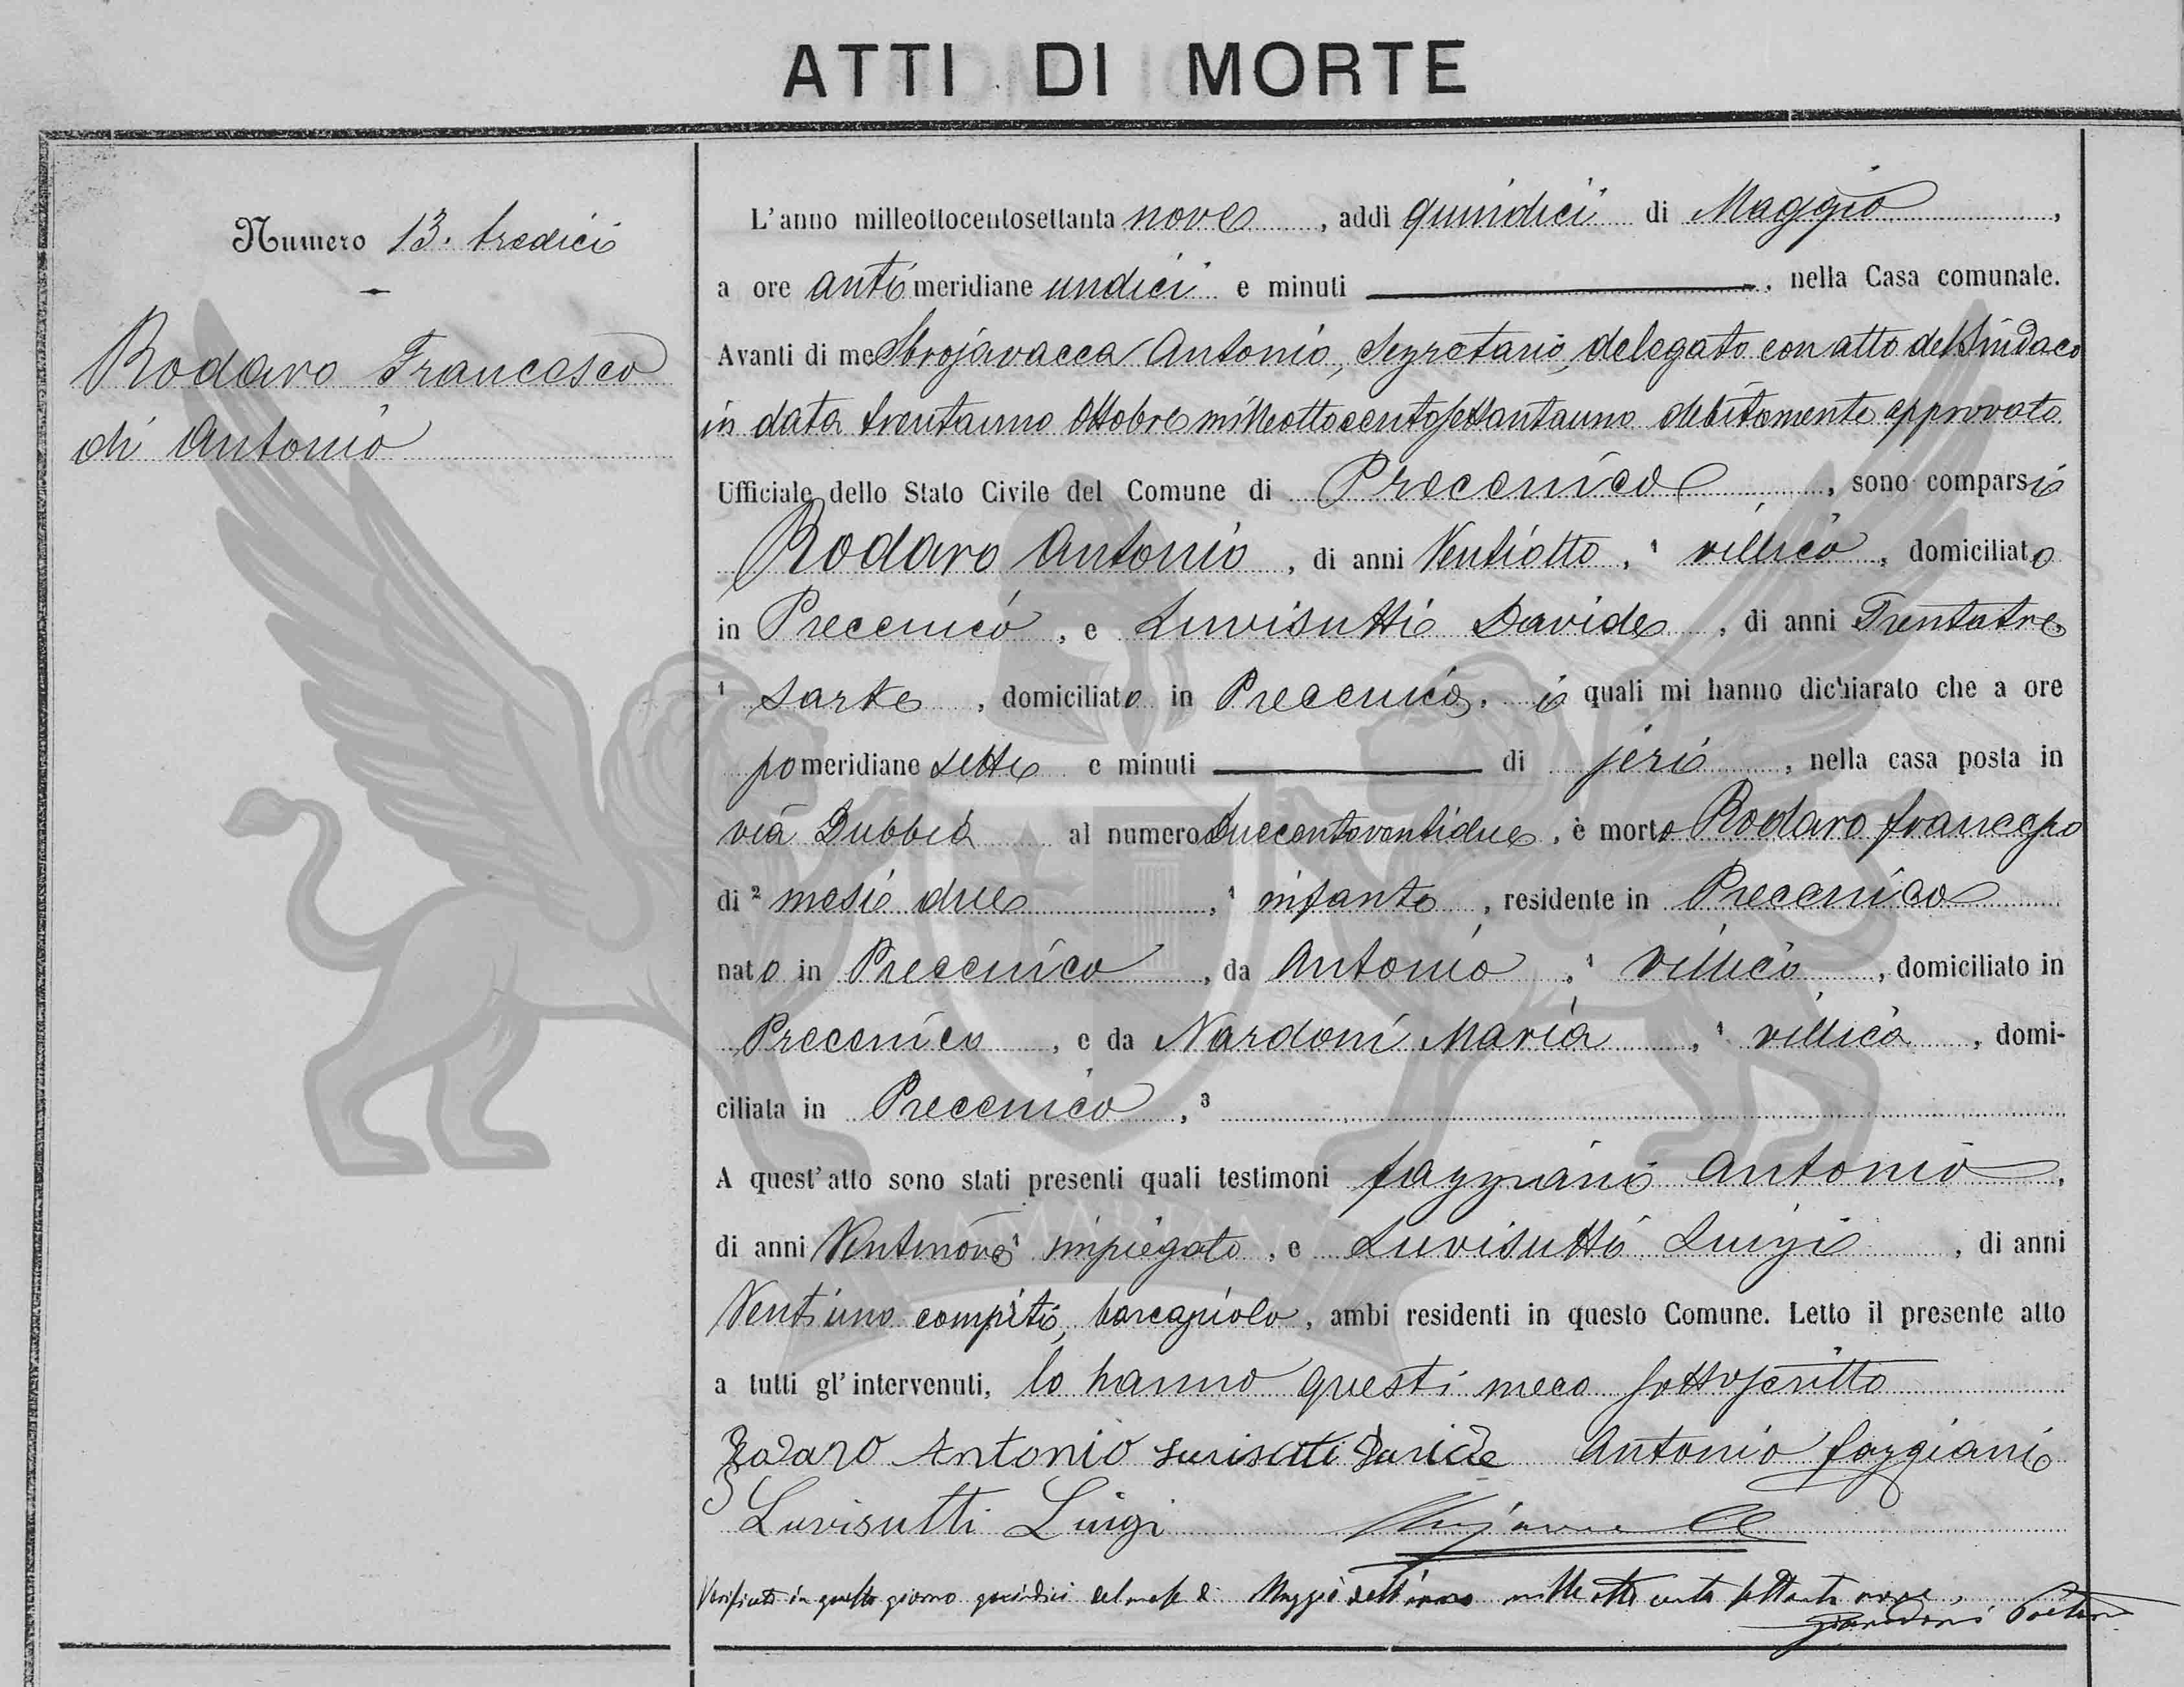 ATTI DI MORTE
Numero 13. tredici
Rodaro Francesco
di Antonio
L'anno milleottocentosettanta nove, addì quindici di Maggio,
a ore anti meridiane undici e minuti, nella Casa comunale.
Avanti di me Sbrojavacca Antonio, Segretario, delegato con atto del Sindaco
in data trentauno Ottobre milleottocentosettantauno debitamente approvato
Ufficiale dello Stato Civile del Comune di Precenico, sono comparsi
Rodaro Antonio, di anni Ventiotto, ¹ villico, domiciliato
in Precenico, e Luvisutti Davide, di anni Trentatre,
¹ sarte, domiciliato in Precenico, i quali mi hanno dichiarato che a ore
pomeridiane sette e minuti di jeri, nella casa posta in
via Dubbia al numero Duecentoventidue, è morto Rodaro Francesco
di ² mesi due, ¹ infante, residente in Precenico
nato in Precenico, da Antonio, ¹ villico, domiciliato in
Precenico, e da Nardoni Maria, ¹ villica, domi-
ciliata in Precenico, ³
A quest'atto sono stati presenti quali testimoni Faggiani Antonio,
di anni Ventinove ¹ impiegato, e Luvisutti Luigi, di anni
Ventiuno compiti, barcajuolo, ambi residenti in questo Comune. Letto il presente atto
a tutti gl'intervenuti, lo hanno questi meco sottoscritto
Rodaro Antonio Luvisutti Davide Antonio Faggiani
Luvisutti Luigi
Verificato in questo giorno quindici del mese di Maggio dell'anno mille otto cento settanta nove,
Pretore